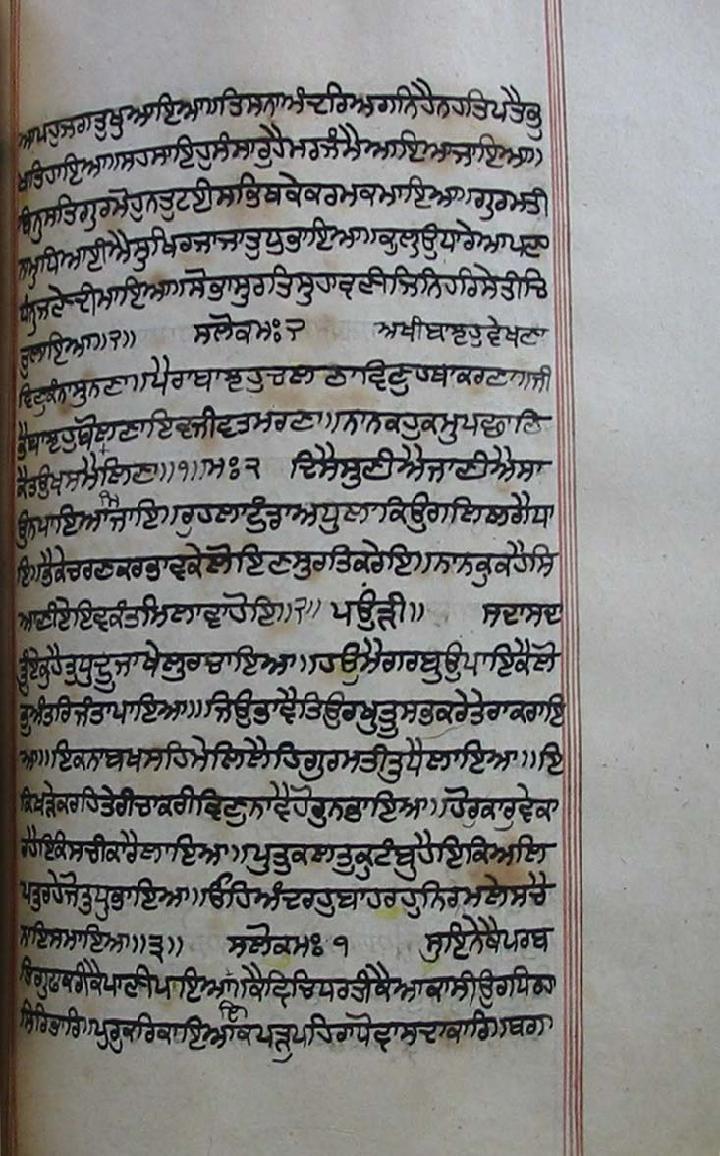 ਆਪਹੁਜਗਤੁਖੁਆਇਆ॥ਤ੍ਰਿਸਨਾਅੰਦਰਿਅਗਨਿਹੈਨਹਤਿਪਤੈਭੁ
ਖਤਿਹਾਇਆ॥ਸਹਸਾਇਹੁਸੰਸਾਰੁਹੈਮਰਜੰਮੈਆਇਆਜਾਇਆ॥
ਬਿਨੁਸਤਿਗੁਰਮੋਹੁਨਤੁਟਈਸਭਿਥਕੇਕਰਮਕਮਾਇਆ॥ਗੁਰਮਤੀ
ਨਾਮੁਧਿਆਈਐਸੁਖਿਰਜਾਜਾਤੁਧੁਭਾਇਆ॥ਕੁਲੁਉਧਾਰੇਆਪਣਾ
ਧੰਨੁਜਣੇਦੀਮਾਇਆ॥ਸੋਭਾਸੁਰਤਿਸੁਹਾਵਣੀਜਿਨਿਹਰਿਸੇਤੀਚਿ
ਤੁਲਾਇਆ॥੨॥ ਸਲੋਕਮਃ੨ ਅਖੀਬਾਝਹੁਵੇਖਣਾ
ਵਿਣੁਕੰਨਾਸੁਨਣਾ॥ਪੈਰਾਬਾਝਹੁਚਲਣਾਵਿਣੁਹਥਾਕਰਣਾ॥ਜੀ
ਭੈਬਾਝਹੁਬੋਲਣਾਇਵਜੀਵਤਮਰਣਾ॥ਨਾਨਕਹੁਕਮੁਪਛਾਣਿ
ਕੈਤਉਖਸਮੈਮਿਲਣਾ॥੧॥ਮਃ੨ ਦਿਸੈਸੁਣੀਐਜਾਣੀਐਸਾ
ਉਨਪਾਇਆਜਾਇ॥ਰੁਹਲਾਟੁੰਡਾਅਧੁਲਾਕਿਉਗਲਿਲਗੈਧਾ
ਇ॥ਭੈਕੇਚਰਣਕਰਭਾਵਕੇਲੋਇਣਸੁਰਤਿਕਰੇਇ॥ਨਾਨਕੁਕਹੈਸਿ
ਆਣੀਏਇਵਕੰਤਮਿਲਾਵਾਹੋਇ॥੨॥ ਪਉੜੀ॥ ਸਦਾਸਦਾ
ਤੂੰਏਕੁਹੈਤੁਧੁਦੂਜਾਖੇਲੁਰਚਾਇਆ॥ਹਉਮੈਗਰਬੁਉਪਾਇਕੈਲੋ
ਭੁਅੰਤਰਿਜੰਤਾਪਾਇਆ॥ਜਿਉਭਾਵੈਤਿਉਰਖੁਤੂਸਭਕਰੇਤੇਰਾਕਰਾਇ
ਆ॥ਇਕਨਾਬਖਸਹਿਮੇਲਿਲੈਹਿਗੁਰਮਤੀਤੁਧੈਲਾਇਆ॥ਇ
ਕਿਖੜੇਕਰਹਿਤੇਰੀਚਾਕਰੀਵਿਣੁਨਾਵੈਹੋਰੁਨਭਾਇਆ॥ਹੋਰੁਕਾਰੁਵੇਕਾ
ਰਹੈਇਕਿਸਚੀਕਾਰੈਲਾਇਆ॥ਪੁਤੁਕਲਤੁਕੁਟੰਬੁਹੈਇਕਿਅਲਿ
ਪਤੁਰਹੇਜੋਤੁਧੁਭਾਇਆ॥ਓਹਿਅੰਦਰਹੁਬਾਹਰਹੁਨਿਰਮਲੇਸਚੈ
ਨਾਇਸਮਾਇਆ॥੩॥ ਸਲੋਕਮਃ੧ ਸੁਇਨੇਕੈਪਰਬ
ਤਿਗੁਫਾਕਰੀਕੈਪਾਣੀਪਇਆਲਿ॥ਕੈਵਿਚਿਧਰਤੀਕੈਆਕਾਸੀਉਰਧਿਰਹਾ
ਸਿਰਿਭਾਰਿ॥ਪੁਰੁਕਰਿਕਾਇਆਕਪੜੁਪਹਿਰਾਧੋਵਾਸਦਾਕਾਰਿ॥ਬਗਾ